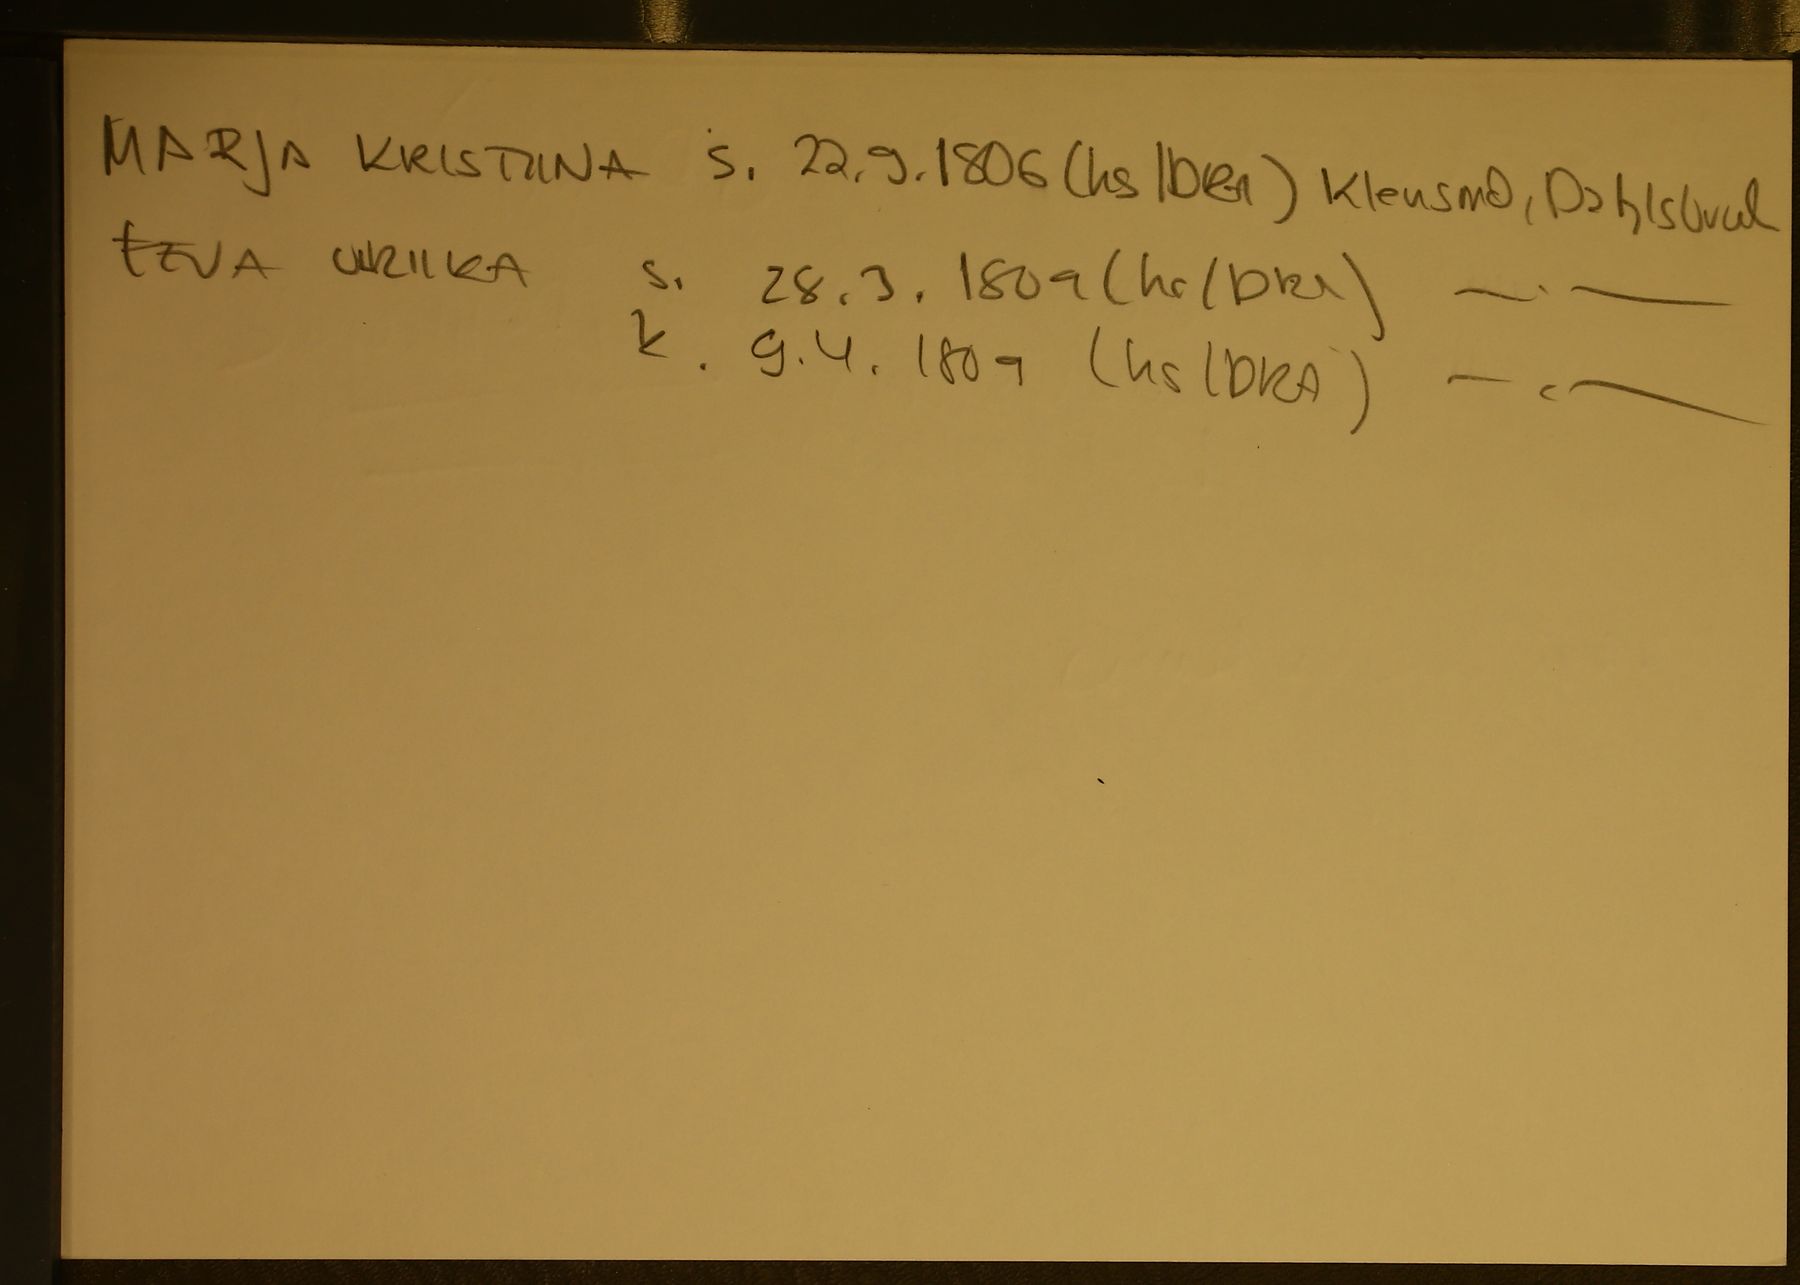 MARJA KRISTIINA s. 22.9.1806 (hs/DKA) Klensmo, Dahlsbruk
EEVA ULRIIKA s. 28.3.1809 (hs/DKA) —"—
k. 9.4.1809 (hs/DKA) —"—